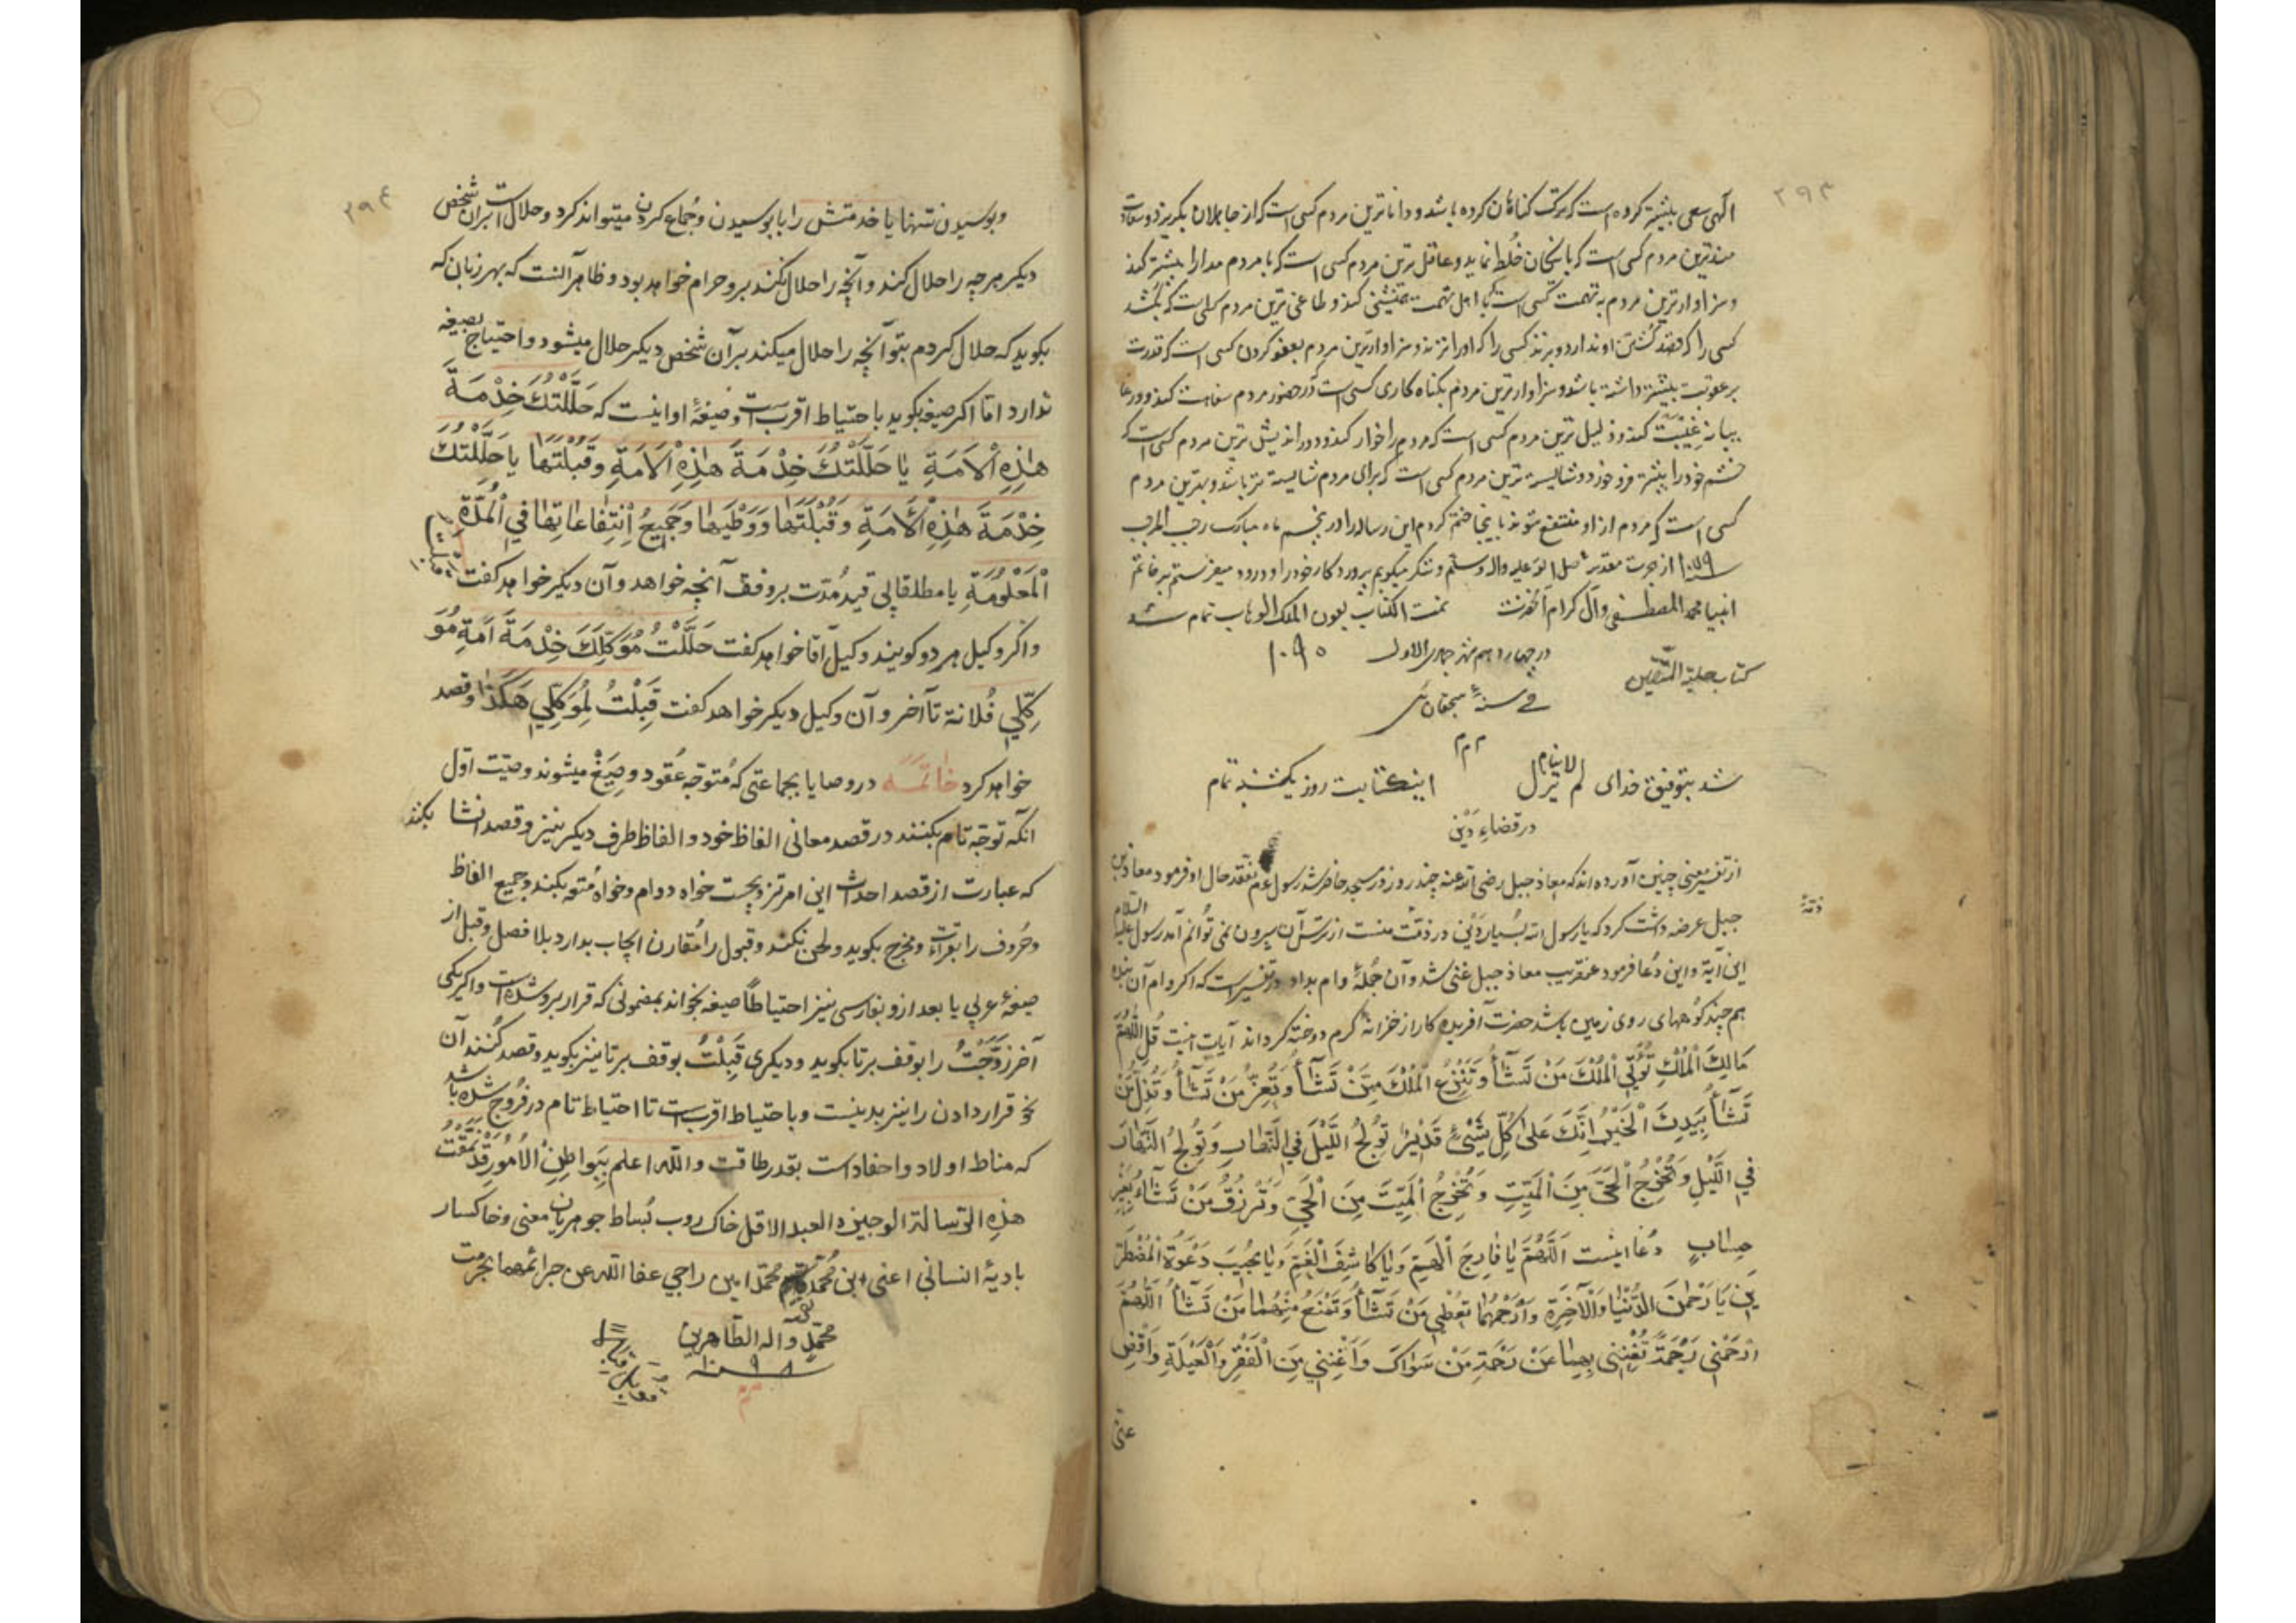 ۳۹۳
الهی سعی بیشتر کرده است که ترک گناهان کرده باشد و داناترین مردم کسی است که از جاهلان بگریزد و سعادت
مندترین مردم کسی است که با نیکان خلط نماید و عاقل ترین مردم کسی است که با مردم مدارا بیشتر کند
و سزاوارترین مردم به تهمت کسی است که با اهل تهمت همنشینی کند و طاغی ترین مردم کسی است که بکشد
کسی را که قصد کشتن او ندارد و بزند کسی را که او را نزند و سزاوارترین مردم بعفو کردن کسی است که قدرت
بر عقوبت بیشتر داشته باشد و سزاوارترین مردم بگناه کاری کسی است که در حضور مردم سفاهت کند و در غا
یبانه غیبت کند و ذلیل ترین مردم کسی است که مردم را خوار کند و دوراندیش ترین مردم کسی است که
خشم خود را بیشتر فرو خورد و شایسته ترین مردم کسی است که برای مردم شایسته تر باشد و بهترین مردم
کسی است که مردم از او منتفع شوند باینجا ختم کردم این رساله را در پنجم ماه مبارک رجب المرجب
سنه ۱۰۷۹ از هجرت مقدس صلی الله علیه واله وسلم و شکر میگویم پروردکار خود را و درود میفرستم بر خاتم
انبیا محمد المصطفی وآل کرام آنحضرت تمت الکتاب بعون الملک الوهاب تمام شد
کتاب حلیة المتقین
در چهاردهم شهر جمادی الاول ۱۰۹۰
فی سنهٔ
م م م
شد بتوفیق خدای لم یزل لاینام اینکتابت روز یکشنبه تمام
در قضاء دَیْن
از تفسیر معنی چنین آورده اند که معاذ جبل رضی الله عنه چند روز در مسجد حاضر نشد رسول عم تفقد حال او فرمود معاذ بن
جبل عرضه داشت کرد که یا رسول الله بسیار دَیْنی در ذمّت منست از ترس آن بیرون نمی توانم آمد رسول علیه السلام
این آیة و این دُعا فرمود عنقریب معاذ جبل غنی شد و آن جُملهٔ وام بداد در تفسیر است که اکر وام آن بنده
هم چند کوههای روی زمین باشد حضرت آفریده کار از خزانهٔ کرم دوخته کرداند آیات اینست قُلِ اللّٰهُمَّ
مَالِكَ الْمُلْكِ تُؤْتِي الْمُلْكَ مَنْ تَشَآءُ وَتَنْزِعُ الْمُلْكَ مِمَّنْ تَشَآءُ وَتُعِزُّ مَنْ تَشَآءُ وَتُذِلُّ مَنْ
تَشَآءُ بِيَدِكَ الْخَيْرُ اِنَّكَ عَلىٰ كُلِّ شَيْئٍ قَدِيرٌ تُولِجُ اللَّيْلَ فِي النَّهٰارِ وَتُولِجُ النَّهٰارَ
فِي اللَّيْلِ وَتُخْرِجُ الْحَيَّ مِنَ الْمَيِّتِ وَتُخْرِجُ الْمَيِّتَ مِنَ الْحَيِّ وَتَرْزُقُ مَنْ تَشَآءُ بِغَيْرِ
حِسٰابٍ دُعا اینست اَللّٰهُمَّ يٰا فٰارِجَ الْهَمِّ وَيٰا كٰاشِفَ الْغَمِّ وَيٰا مُجِيبَ دَعْوَةِ الْمُضْطَرِّ
ينَ يٰا رَحْمٰنَ الدُّنْيٰا وَالْآخِرَةِ وَرَحِيمَهُمٰا تُعْطِي مَنْ تَشَآءُ وَتَمْنَعُ مِنْهُمٰا مَنْ تَشَآءُ اَللّٰهُمَّ
ارْحَمْنِي رَحْمَةً تُغْنِنِي بِهٰا عَنْ رَحْمَةِ مَنْ سِوٰاكَ وَاَغْنِنِي مِنَ الْفَقْرِ وَالْعَيْلَةِ وَاقْضِ
عنّی
ذمّة
۳۹۴
و بوسیدن تنها یا خدمتش را با بوسیدن و جُماع کردن میتواند کرد و حلال است بران شخص
دیکر هرچه را حلال کند و آنچه را حلال نکند برو حرام خواهد بود و ظاهر آنست که بهر زبان که
بکوید که حلال کردم بتو آنچه را حلال میکند بر آن شخص دیکر حلال میشود و احتیاج بصیغه
ندارد امّا اکر صیغه بکوید با حتیاط اقرب است و صیغهٔ او اینست که حَلَّلْتُكَ خِدْمَةَ
هٰذِهِ الْاَمَةِ یا حَلَّلْتُكَ خِدْمَةَ هٰذِهِ الْاَمَةِ وَقُبْلَتَهٰا یا حَلَّلْتُكَ
خِدْمَةَ هٰذِهِ الْاَمَةِ وَقُبْلَتَهٰا وَوَطْيَهٰا وَجَمِيعُ اِنْتِفٰاعٰاتِهٰا فِي الْمُدَّةِ
الْمَعْلُومَةِ یا مطلقا بی قید مُدّت بر وفق آنچه خواهد و آن دیکر خواهد کفت
و اگر وکیل هر دو کویند وکیل آقا خواهد کفت حَلَّلْتُ مُوَكِّلَكَ خِدْمَةَ اَمَةِ مُوَ
كِّلِي فُلانة تا آخر و آن وکیل دیکر خواهد کفت قَبِلْتُ لِمُوَكِّلِي هٰكَذٰا و قصد
خواهد کرد خاتمه در وصایا بجماعتی که مُتوجّه عُقود و صِیَغ میشوند وصیّت اوّل
انکه توجّه تام بکنند در قصد معانی الفاظ خود و الفاظ طرف دیکر نیز و قصد انشا بکنند
که عبارت از قصد احداث این امر تزویجست خواه دوام و خواه مُتعه بکند و جمیع الفاظ
و حُروف را بقرائت و مخرج بکوید و لحن نکند و قبول را مُقارن ایجاب بدارد بلا فصل و قبل از
صیغهٔ عربی یا بعد ازو بفارسی نیز احتیاطاً صیغه بخواند بمضمونی که قرار برو شده است و اکر یکی
آخر زَوَّجْتُ را بوقف بر تا بکوید و دیکری قَبِلْتُ بوقف بر تا نیز بکوید و قصد کُنند آن
نحو قرار دادن را نیز بد نیست و با حتیاط اقرب است تا احتیاط تام در فُروج شده باشد
که مناط اولاد و احفاد است بقدر طاقت والله اعلم بِبَواطِنِ الْاُمُورِ قَدْ نَمَّقْتُ
هذِهِ الرّسالة الوجیزه العبد الاقل خاک روب بُساط جوهریان معنی و خاکسار
بادیهٔ انسانی اعنی ابن مُحمّد محمّد امین راجی عفا الله عن جرائمهما بحرمت
محمّد وآله الطّاهرین
سنه ۱۰۹۸